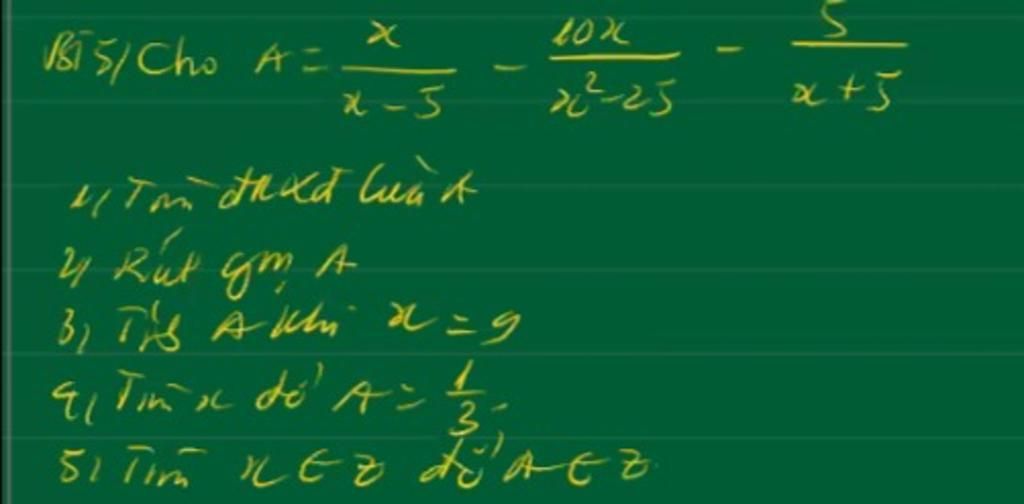 BT5/ Cho A = \frac{x}{x-5} - \frac{10x}{x^2-25} - \frac{5}{x+5}
1, Tìm đkxđ của A
2, Rút gọn A
3, Tính A khi x = 9
4, Tìm x để A = \frac{1}{3}.
5, Tìm x ∈ Z để A ∈ Z.